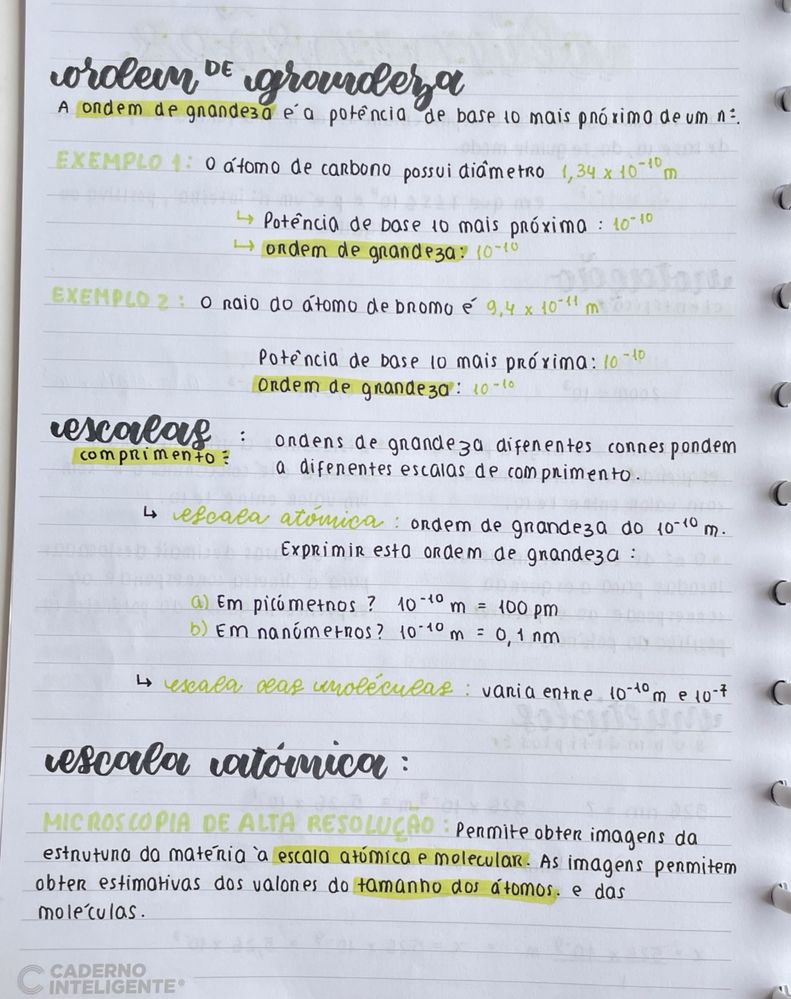 ordem DE grandeza
A ordem de grandeza é a potência de base 10 mais próxima de um nº.
EXEMPLO 1: O átomo de carbono possui diâmetro 1,34 x 10⁻¹⁰ m
↳ Potência de base 10 mais próxima : 10⁻¹⁰
↳ ordem de grandeza: 10⁻¹⁰
EXEMPLO 2 : O raio do átomo de bromo é 9,4 x 10⁻¹¹ m
Potência de base 10 mais próxima: 10⁻¹⁰
Ordem de grandeza : 10⁻¹⁰
escalas : ordens de grandeza diferentes correspondem
comprimento: a diferentes escalas de comprimento.
↳ escala atómica : ordem de grandeza do 10⁻¹⁰ m.
Exprimir esta ordem de grandeza :
a) Em picómetros ? 10⁻¹⁰ m = 100 pm
b) Em nanómetros? 10⁻¹⁰ m = 0,1 nm
↳ escala das moléculas : varia entre 10⁻¹⁰ m e 10⁻⁷
escala atómica :
MICROSCOPIA DE ALTA RESOLUÇÃO : Permite obter imagens da
estrutura da matéria à escala atómica e molecular. As imagens permitem
obter estimativas dos valores do tamanho dos átomos. e das
moléculas.
CADERNO
INTELIGENTE®